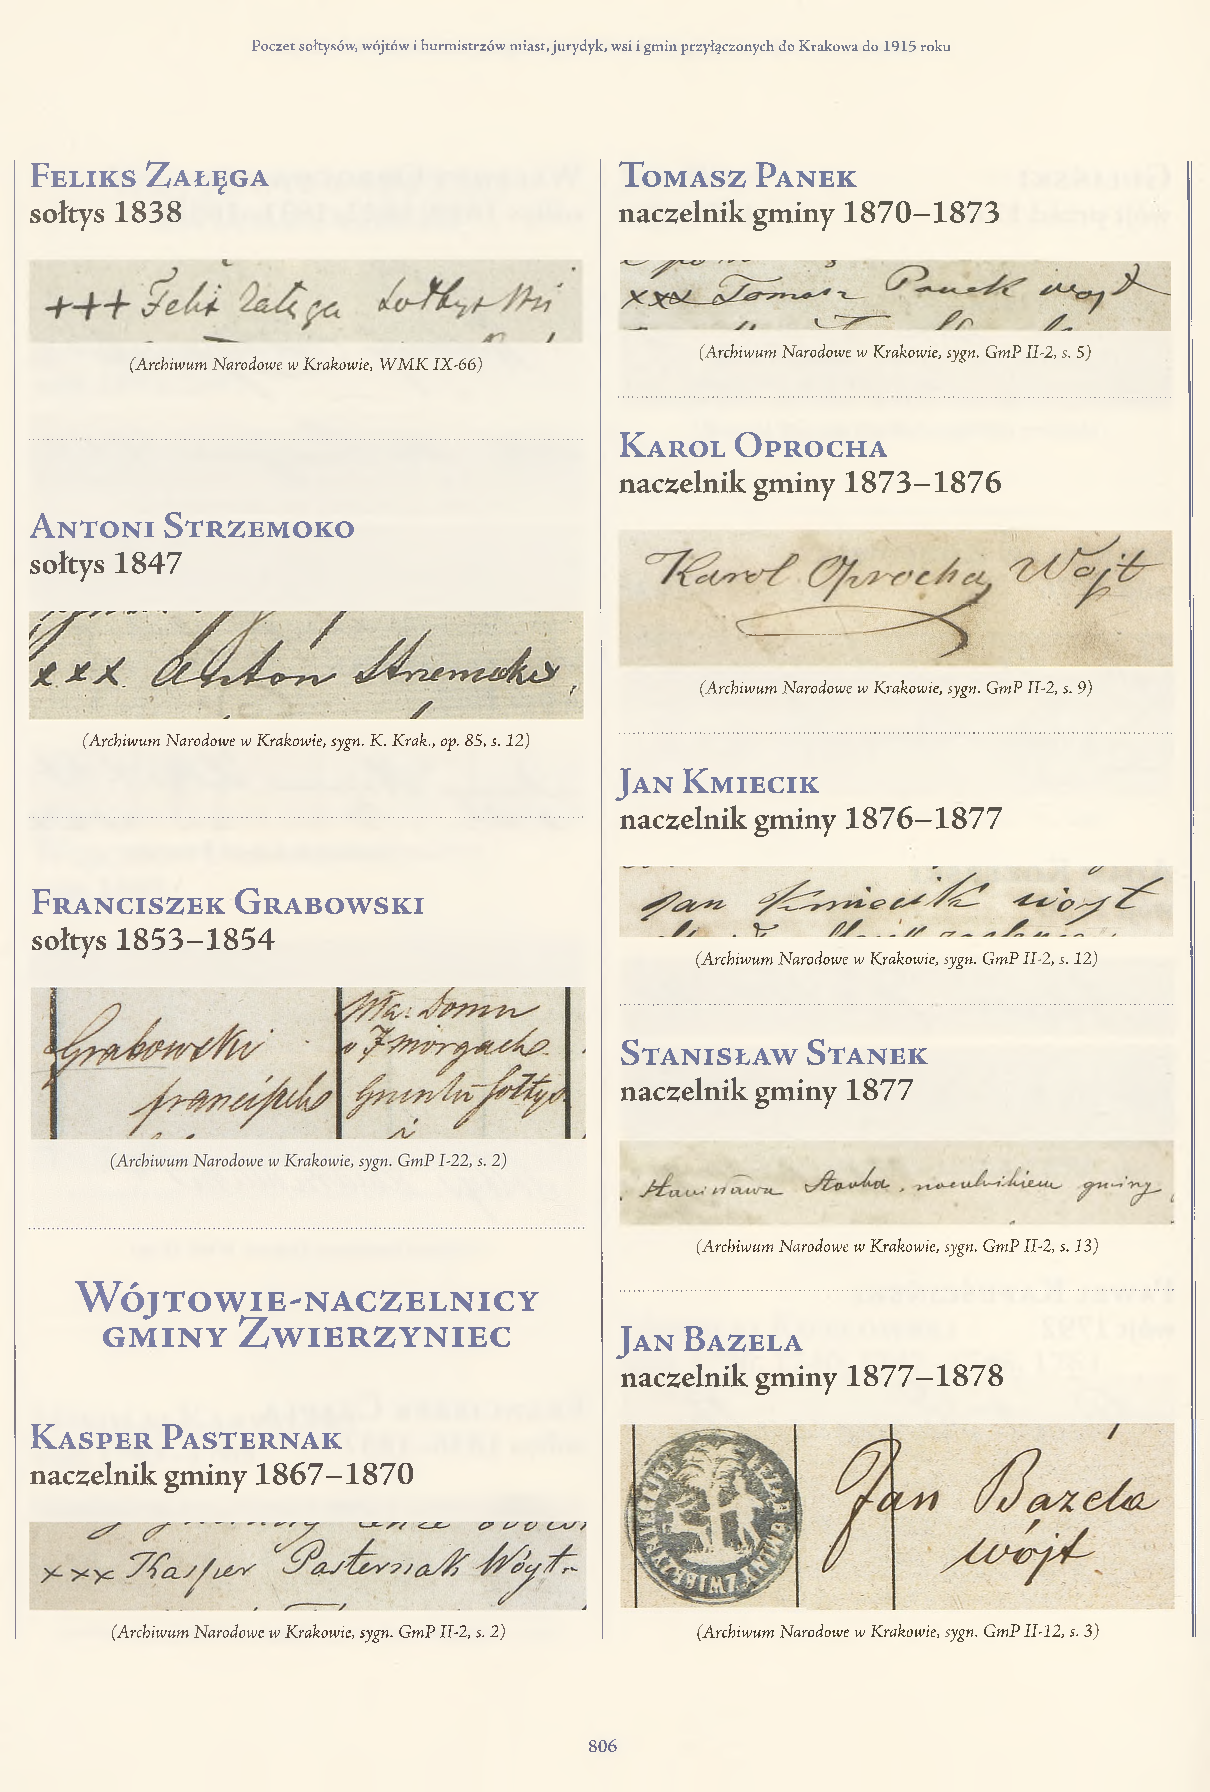 Poczet sołtysów, wójtów i burmistrzów miast, jurydyk, wsi i gmin przyłączonych do Krakowa do 1915 roku
Feliks Załęga
sołtys 1838
+++ Felix Załęga Sołtys Wsi
(Archiwum Narodowe w Krakowie, WMK IX-66)
Antoni Strzemoko
sołtys 1847
x x x Anton Strzemoko
(Archiwum Narodowe w Krakowie, sygn. K. Krak., op. 85, s. 12)
Franciszek Grabowski
sołtys 1853–1854
Grabowski
franciszek
Wła: Domu
o 7 morgach
Gruntu Sołtys
(Archiwum Narodowe w Krakowie, sygn. GmP I-22, s. 2)
Wójtowie-naczelnicy
gminy Zwierzyniec
Kasper Pasternak
naczelnik gminy 1867–1870
xxx Kasper Pasternak Wóyt
(Archiwum Narodowe w Krakowie, sygn. GmP II-2, s. 2)
Tomasz Panek
naczelnik gminy 1870–1873
xxx Tomasz Panek wojt
(Archiwum Narodowe w Krakowie, sygn. GmP II-2, s. 5)
Karol Oprocha
naczelnik gminy 1873–1876
Karol Oprocha Wojt
(Archiwum Narodowe w Krakowie, sygn. GmP II-2, s. 9)
Jan Kmiecik
naczelnik gminy 1876–1877
Jan Kmiecik wóyt
(Archiwum Narodowe w Krakowie, sygn. GmP II-2, s. 12)
Stanisław Stanek
naczelnik gminy 1877
Stanisława Stanka, naczelnikiem gminy
(Archiwum Narodowe w Krakowie, sygn. GmP II-2, s. 13)
Jan Bazela
naczelnik gminy 1877–1878
GMINY ZWIERZYNIEC
Jan Bazela
wójt
(Archiwum Narodowe w Krakowie, sygn. GmP II-12, s. 3)
806